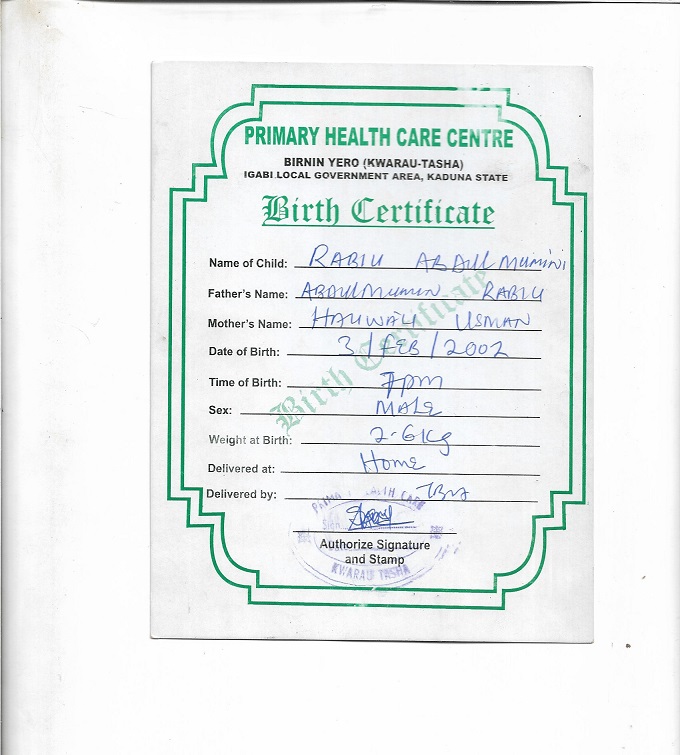 PRIMARY HEALTH CARE CENTRE
BIRNIN YERO (KWARAU-TASHA)
IGABI LOCAL GOVERNMENT AREA, KADUNA STATE
Birth Certificate
Name of Child: RABIU ABDULMUMINI
Father's Name: ABDULMUMIN RABIU
Mother's Name: HAUWAU USMAN
Date of Birth: 3/FEB/2002
Time of Birth: 7pm
Sex: MALE
Weight at Birth: 2.6Kg
Birth Certificate
Delivered at: Home
Delivered by: TBA
PRIMA HEALTH CARE
Sign
Authorize Signature
and Stamp
KWARAU TASHA